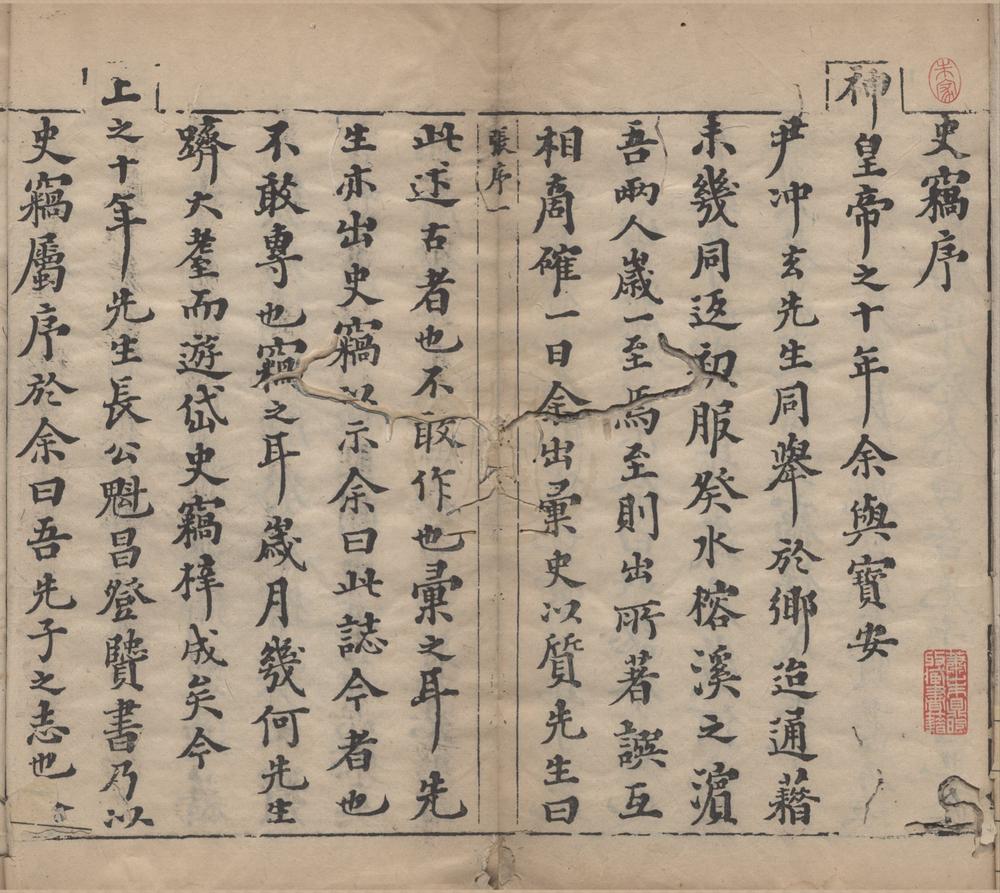 史竊序
神皇帝之十年余與寶安
尹冲玄先生同舉於鄉迨通藉
未幾同返初服癸水榕溪之濵
吾兩人歲一至焉至則出所著譔互
相商確一日余出彙史以質先生曰
張序一
此述古者也不敢作也彙之耳先
生亦出史竊以示余曰此誌今者也
不敢專也竊之耳歲月幾何先生
躋大耋而遊岱史竊梓成矣今
上之十年先生長公魁昌登賢書乃以
史竊屬序於余曰吾先子之志也